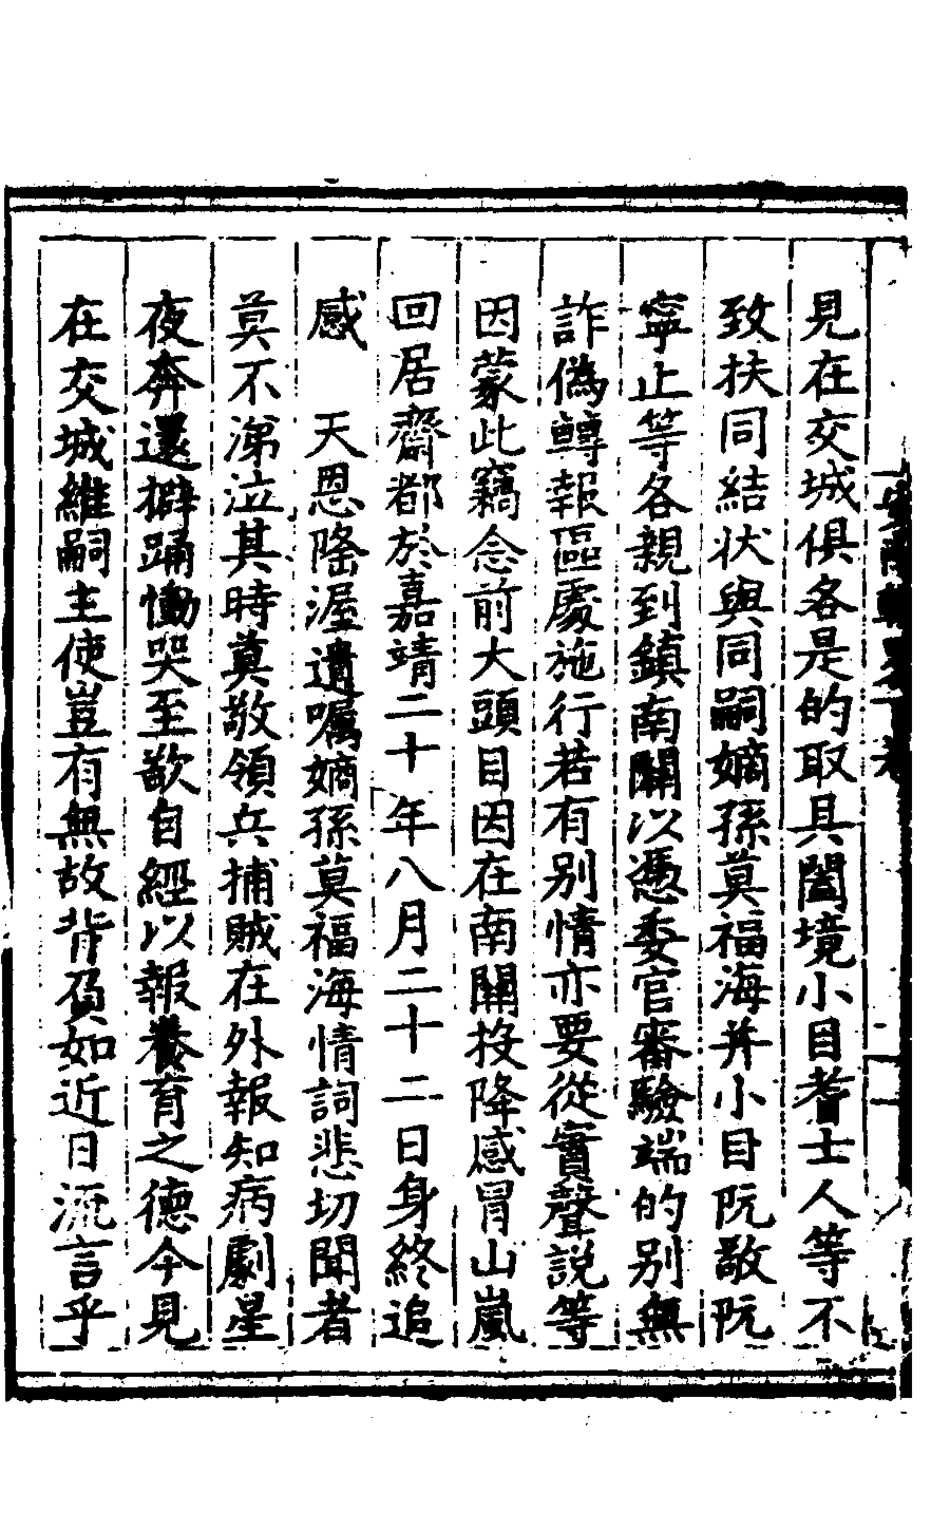 見在交城俱各是的取具闔境小目耆士人等不
致扶同結狀與同嗣嫡孫莫福海并小目阮敬阮
寧止等各親到鎮南關以憑委官審驗端的别無
詐偽轉報區處施行若有别情亦要從實聲説等
因蒙此竊念前大頭目因在南關投降感冒山嵐
回居齋都於嘉靖二十年八月二十二日身終追
感　天恩隆渥遺囑嫡孫莫福海情詞悲切聞者
莫不涕泣其時莫敬領兵捕賊在外報知病劇星
夜奔還擗踊慟哭至欲自經以報養育之德今見
在交城維嗣主使豈有無故背負如近日流言乎